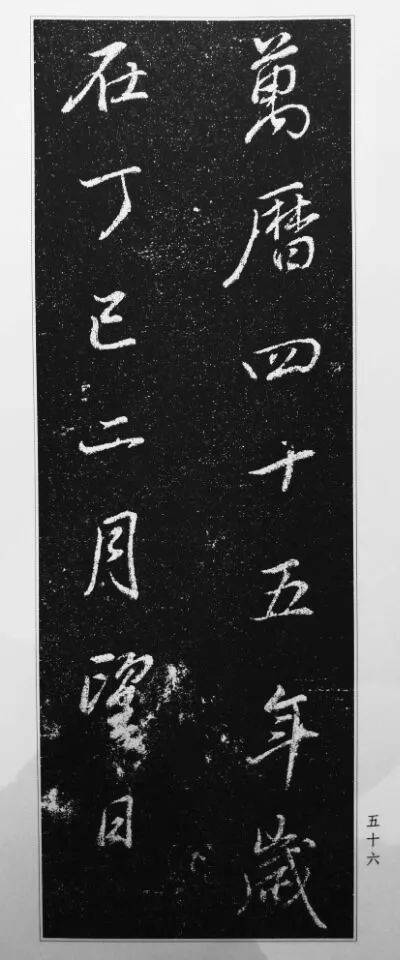 萬曆四十五年歲
在丁巳二月望日
五十六